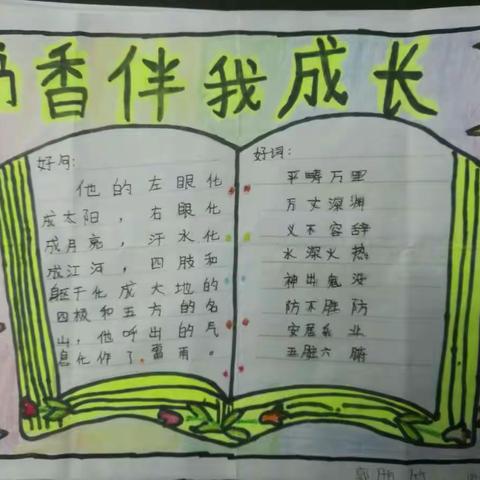 书香伴我成长
好句：
他的左眼化
成太阳，右眼化
成月亮，汗水化
成江河，四肢和
躯干化成大地的
四极和五方的名
山，他呼出的气
息化作了雷雨。
好词：
平畴万里
万丈深渊
义不容辞
水深火热
神出鬼没
防不胜防
安居乐业
五脏六腑